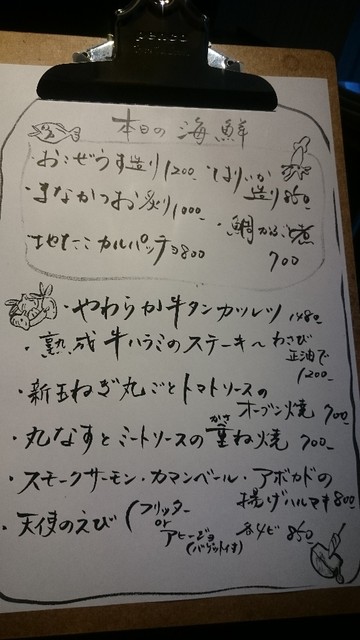 penco
本日の海鮮
・おこぜうす造り1200-
・はりいか造り850
・まなかつお炙り1000-
・鯛かぶと煮700
・地たこカルパッチョ800
・やわらか牛タンカツレツ 1480
・熟成牛ハラミのステーキ〜わさび正油で1200-
・新玉ねぎ丸ごとトマトソースの
オーブン焼 700
・丸なすとミートソースの重ね焼 700-
かさ
・スモークサーモン・カマンベール・アボカドの
揚げハルマキ800
・天使のえび(フリッター
or
アヒージョ
(バゲット付)
各4ピ 850